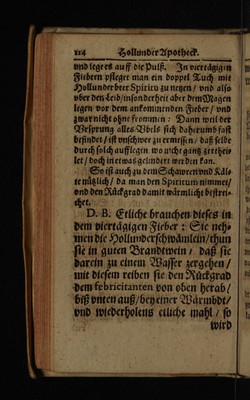 114 Hollunder Apotheck.
und lege es auff die Pulß. In viertägigen
Fiebern pfleget man ein doppel Tuch mit
Hollunderbeer Spiritu zu netzen / und also
vber den Leib/ insonderheit aber dem Magen
legen vor dem ankommenden Fieber / und
zwar nicht ohne frommen : Dann weil der
Vrsprung alles Vbels sich daherumb fast
befindet / ist vnschwer zu ermessen / daß selbe
durch solch aufflegen wo nicht gantz zertheilet
/ doch in etwas gelindert werden kan.
So ist auch zu dem Schawren und Kälte
nützlich / da man den Spiritum nimmet/
und den Rückgrad damit wärmlicht bestreichet.
D. B. Etliche brauchen dieses in
dem viertägigen Fieber : Sie nehmen
die Hollunderschwämlein/ thun
sie in guten Brandtwein / daß sie
darein zu einem Wasser zergehen/
mit diesem reiben sie den Rückgrad
dem febricitanten von oben herab/
biß vnten auß/ bey einer Wärmbdt/
und wiederholens etliche mahl / so
wird